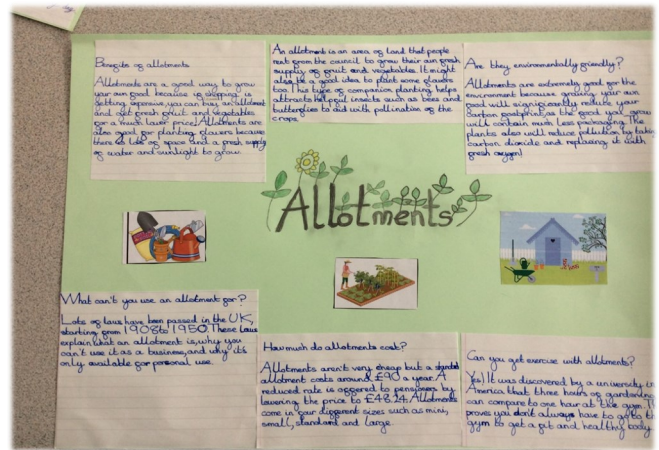 Benefits of allotments
Allotments are a good way to grow
your own food because if shopping is
getting expensive, you can buy an allotment
and get fresh fruit and vegetables
for a much lower price! Allotments are
also good for planting flowers because
there is lots of space and a fresh supply
of water and sunlight to grow.
An allotment is an area of land that people
rent from the council to grow their own fresh
supply of fruit and vegetables. It might
also be a good idea to plant some flowers
too. This type of companion planting helps
attracts helpful insects such as bees and
butterflies to aid with pollination of the
crops.
Are they environmentally friendly?
Allotments are extremely good for the
environment because growing your own
food will significantly reduce your
carbon footprint, as the food you grow
will contain much less packaging. The
plants also will reduce pollution by taking
carbon dioxide and replacing it with
fresh oxygen!
Allotments
What can't you use an allotment for?
Lots of laws have been passed in the UK,
starting from 1908 to 1950. These laws
explain what an allotment is, why you
can't use it as a business, and why it's
only available for personal use.
How much do allotments cost?
Allotments aren't very cheap but a standard
allotment costs around £90 a year. A
reduced rate is offered to pensioners by
lowering the price to £48.24. Allotments
come in four different sizes such as mini,
small, standard and large.
Can you get exercise with allotments?
Yes! It was discovered by a university in
America that three hours of gardening
can compare to one hour at the gym.
proves you don't always have to go to the
gym to get a fit and healthy body.